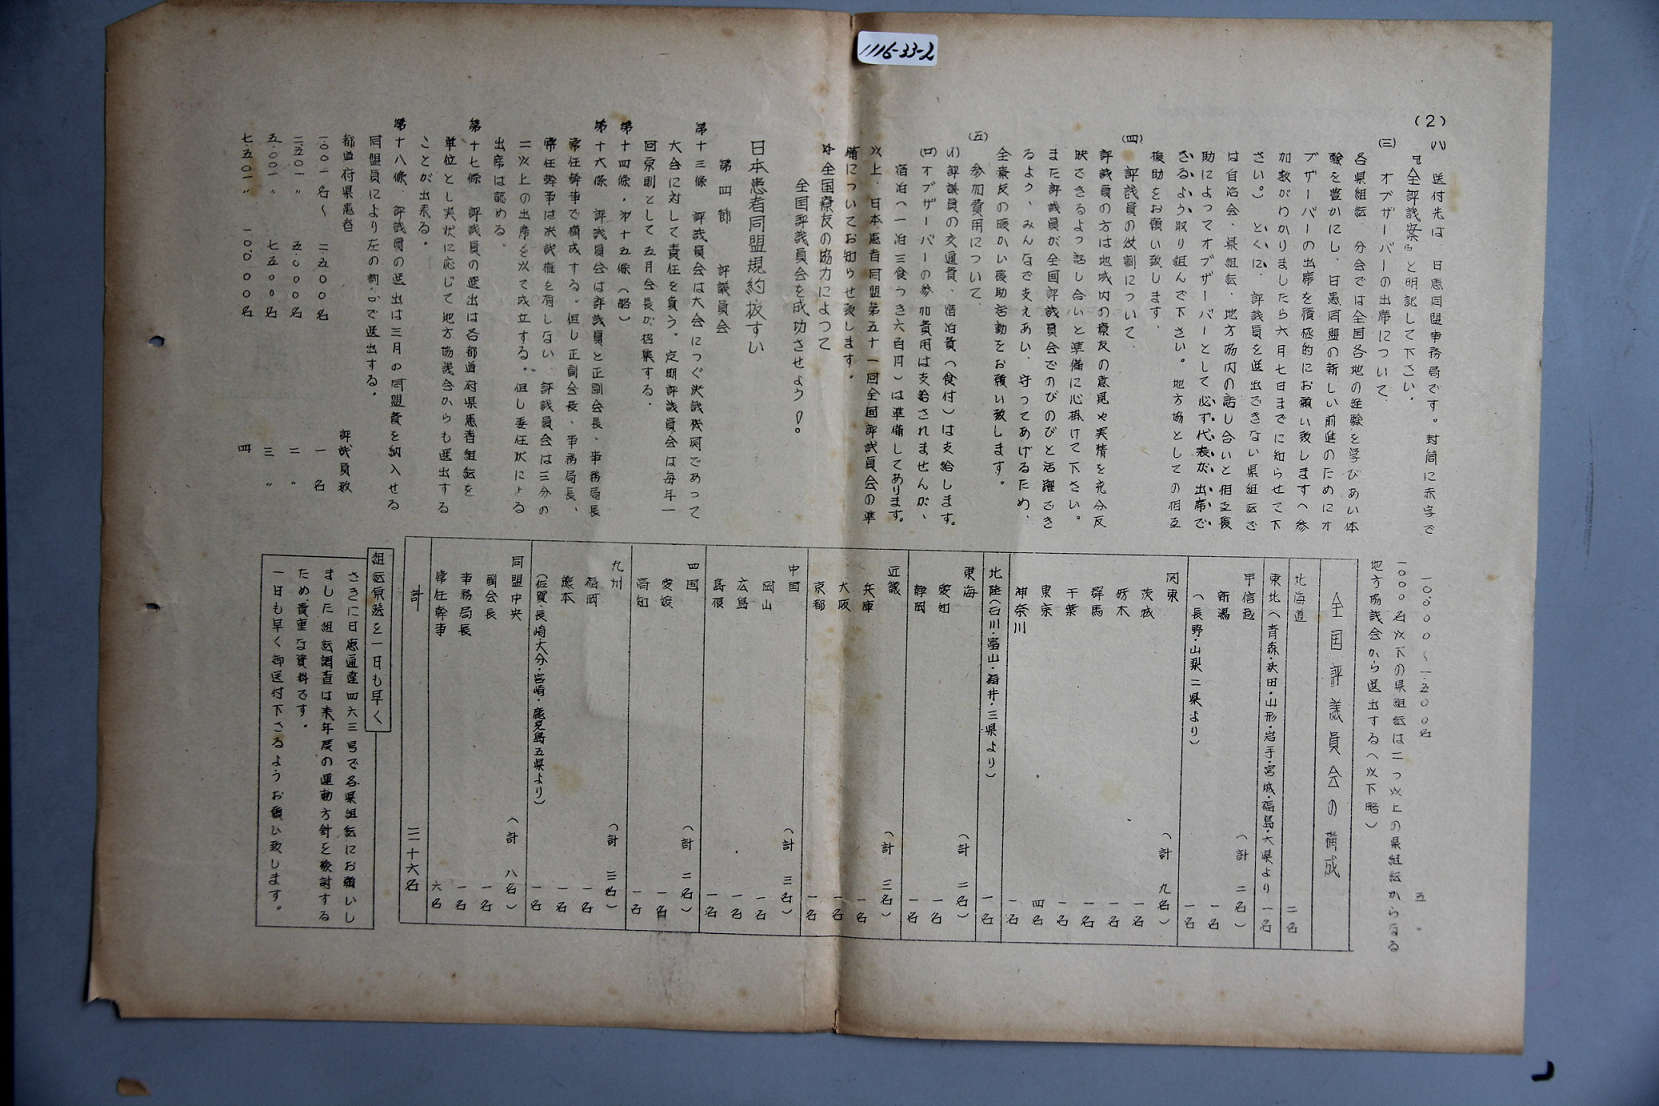 1116-33-2
(2)
(ハ) 送付先は 日患同盟事務局です。封筒に赤字で
『全評議案』と明記して下さい。
(三) オブザーバーの出席について、
各県組織、分会では全国各地の経験を学びあい体
験を豊かにし、日患同盟の新しい前進のためにオ
ブザーバーの出席を積極的にお願い致します(参
加数がわかりましたら六月七日までに知らせて下
さい。) とくに、評議員を選出できない県組織で
は自治会・県組織・地方協内の話し合いと相互援
助によってオブザーバーとして必ず代表が出席で
きるよう取り組んで下さい。地方協としての相互
援助をお願い致します。
(四) 評議員の役割について、
評議員の方は地域内の療友の意見や実情を充分反
映できるよう話し合いと準備に心掛けて下さい。
また評議員が全国評議員会でのびのびと活躍でき
るよう、みんなで支えあい、守ってあげるため、
全療友の暖かい援助活動をお願い致します。
(五) 参加費用について、
(イ) 評議員の交通費、宿泊費(食付)は支給します。
(ロ) オブザーバーの参加費用は支給されませんが、
宿泊(一泊三食つき六百円)は準備してあります。
以上、日本患者同盟第五十一回全国評議員会の準
備についてお知らせ致します。
全国療友の協力によって
全国評議員会を成功させよう!。
日本患者同盟規約抜すい
第四節 評議員会
第十三條 評議員会は大会につぐ決議機関であって
大会に対して責任を負う。定期評議員会は毎年一
回原則として五月会長が招集する。
第十四條・第十五條(略)
第十六條 評議員会は評議員と正副会長、事務局長、
常任幹事で構成する。但し正副会長、事務局長、
常任幹事は決議権を有しない。評議員会は三分の
二以上の出席を以て成立する。但し委任状による
出席は認める。
第十七條 評議員の選出は各都道府県患者組織を
単位とし実状に応じて地方協議会からも選出する
ことが出来る。
第十八條 評議員の選出は三月の同盟費を納入せる
同盟員により左の割合で選出する。
都道府県患者 評議員数
一〇〇一名〜 二五〇〇名 一名
二五〇一〃 五〇〇〇名 二〃
五〇〇一〃 七五〇〇名 三〃
七五〇一〃 一〇、〇〇〇名 四
一〇、〇〇〇〜一五〇〇名 五〃
一〇〇〇名以下の県組織は二つ以上の県組織からなる
地方協議会から選出する(以下略)
全国評議員会の構成
北海道 二名
東北(青森・秋田・山形・岩手・宮城・福島・六県より一名
甲信越 (計 二名)
新潟 一名
(長野・山梨二県より) 一名
関東 (計 九名)
茨城 一名
栃木 一名
群馬 一名
千葉 一名
東京 四名
神奈川 一名
北陸(石川・富山・福井・三県より) 一名
東海 (計 二名)
愛知 一名
静岡 一名
近畿 (計 三名)
兵庫 一名
大阪 一名
京都 一名
中国 (計 三名)
岡山 一名
広島 一名
島根 一名
四国 (計 二名)
愛媛 一名
高知 一名
九州 (計 三名)
福岡 一名
熊本 一名
(佐賀・長崎大分・宮崎・鹿児島五県より) 一名
同盟中央 (計 八名)
副会長 一名
事務局長 一名
常任幹事 六名
計 三十六名
組織原簿を一日も早く
さきに日患通達四六三号で各県組織にお願いし
ました組織調査は来年度の運動方針を検討する
ため貴重な資料です。
一日も早く御送付下さるようお願い致します。